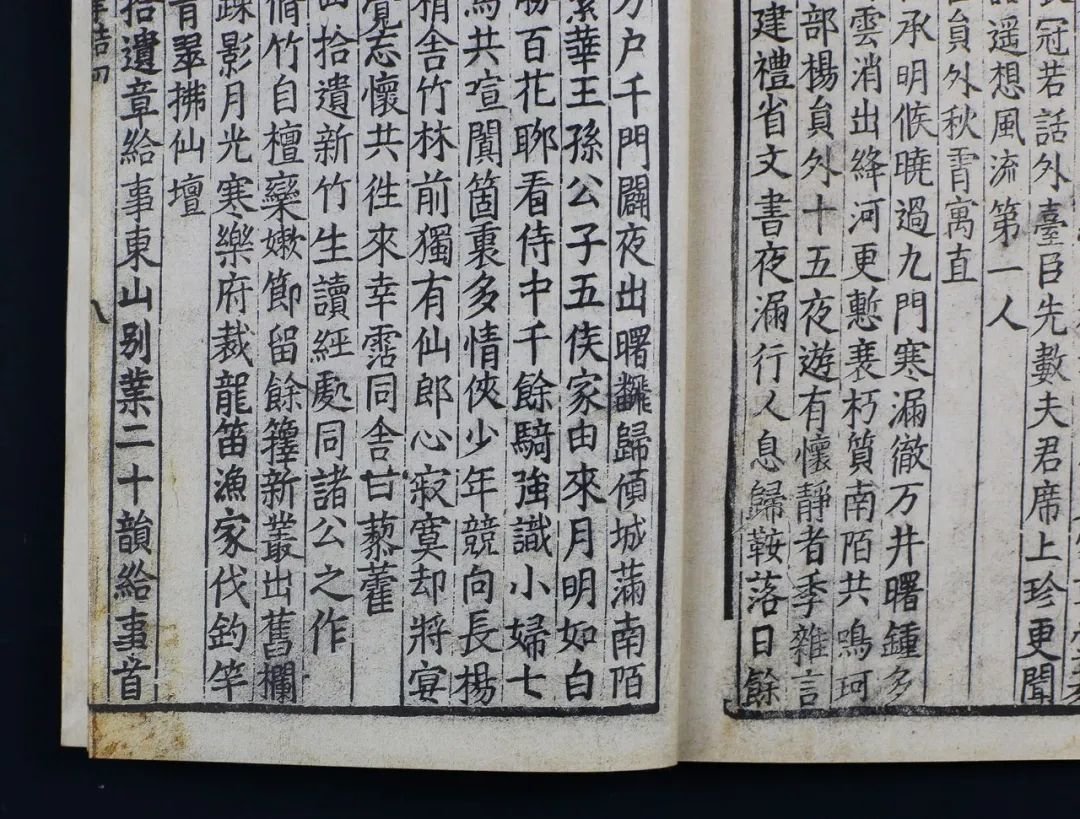 冠若話外臺臣先數夫君席上珍更聞
遥想風流第一人
員外秋霄寓直
承明候曉過九門寒漏徹万井曙鍾多
雲消出絳河更慙衰朽質南陌共鳴珂
部楊員外十五夜遊有懷靜者季雜言
建禮省文書夜漏行人息歸鞍落日餘
万户千門闢夜出曙飜歸傾城滿南陌
繁華王孫公子五侯家由來月明如白
勝百花聊看侍中千餘騎強識小婦七
馬共喧闐箇裏多情俠少年競向長楊
稍舍竹林前獨有仙郎心寂寞却將宴
覺忘懷共徃來幸霑同舍甘藜藿
山拾遺新竹生讀經處同諸公之作
脩竹自檀欒嫩節留餘籜新叢出舊欄
踈影月光寒樂府裁龍笛漁家伐釣竿
青翠拂仙壇
拾遺章給事東山别業二十韻給事首
八